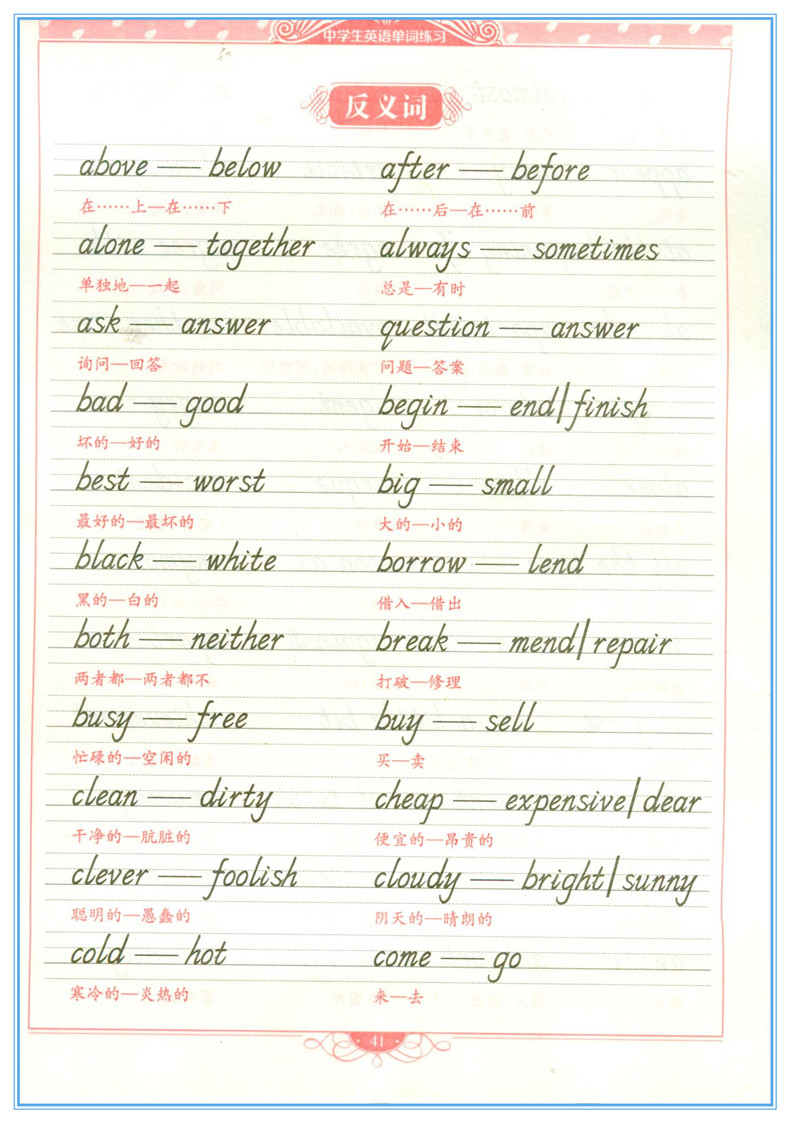 中学生英语单词练习
反义词
above — below after — before
在……上—在……下 在……后—在……前
alone — together always — sometimes
单独地—一起 总是—有时
ask — answer question — answer
询问—回答 问题—答案
bad — good begin — end|finish
坏的—好的 开始—结束
best — worst big — small
最好的—最坏的 大的—小的
black — white borrow — lend
黑的—白的 借入—借出
both — neither break — mend|repair
两者都—两者都不 打破—修理
busy — free buy — sell
忙碌的—空闲的 买—卖
clean — dirty cheap — expensive|dear
干净的—肮脏的 便宜的—昂贵的
clever — foolish cloudy — bright|sunny
聪明的—愚蠢的 阴天的—晴朗的
cold — hot come — go
寒冷的—炎热的 来—去
41